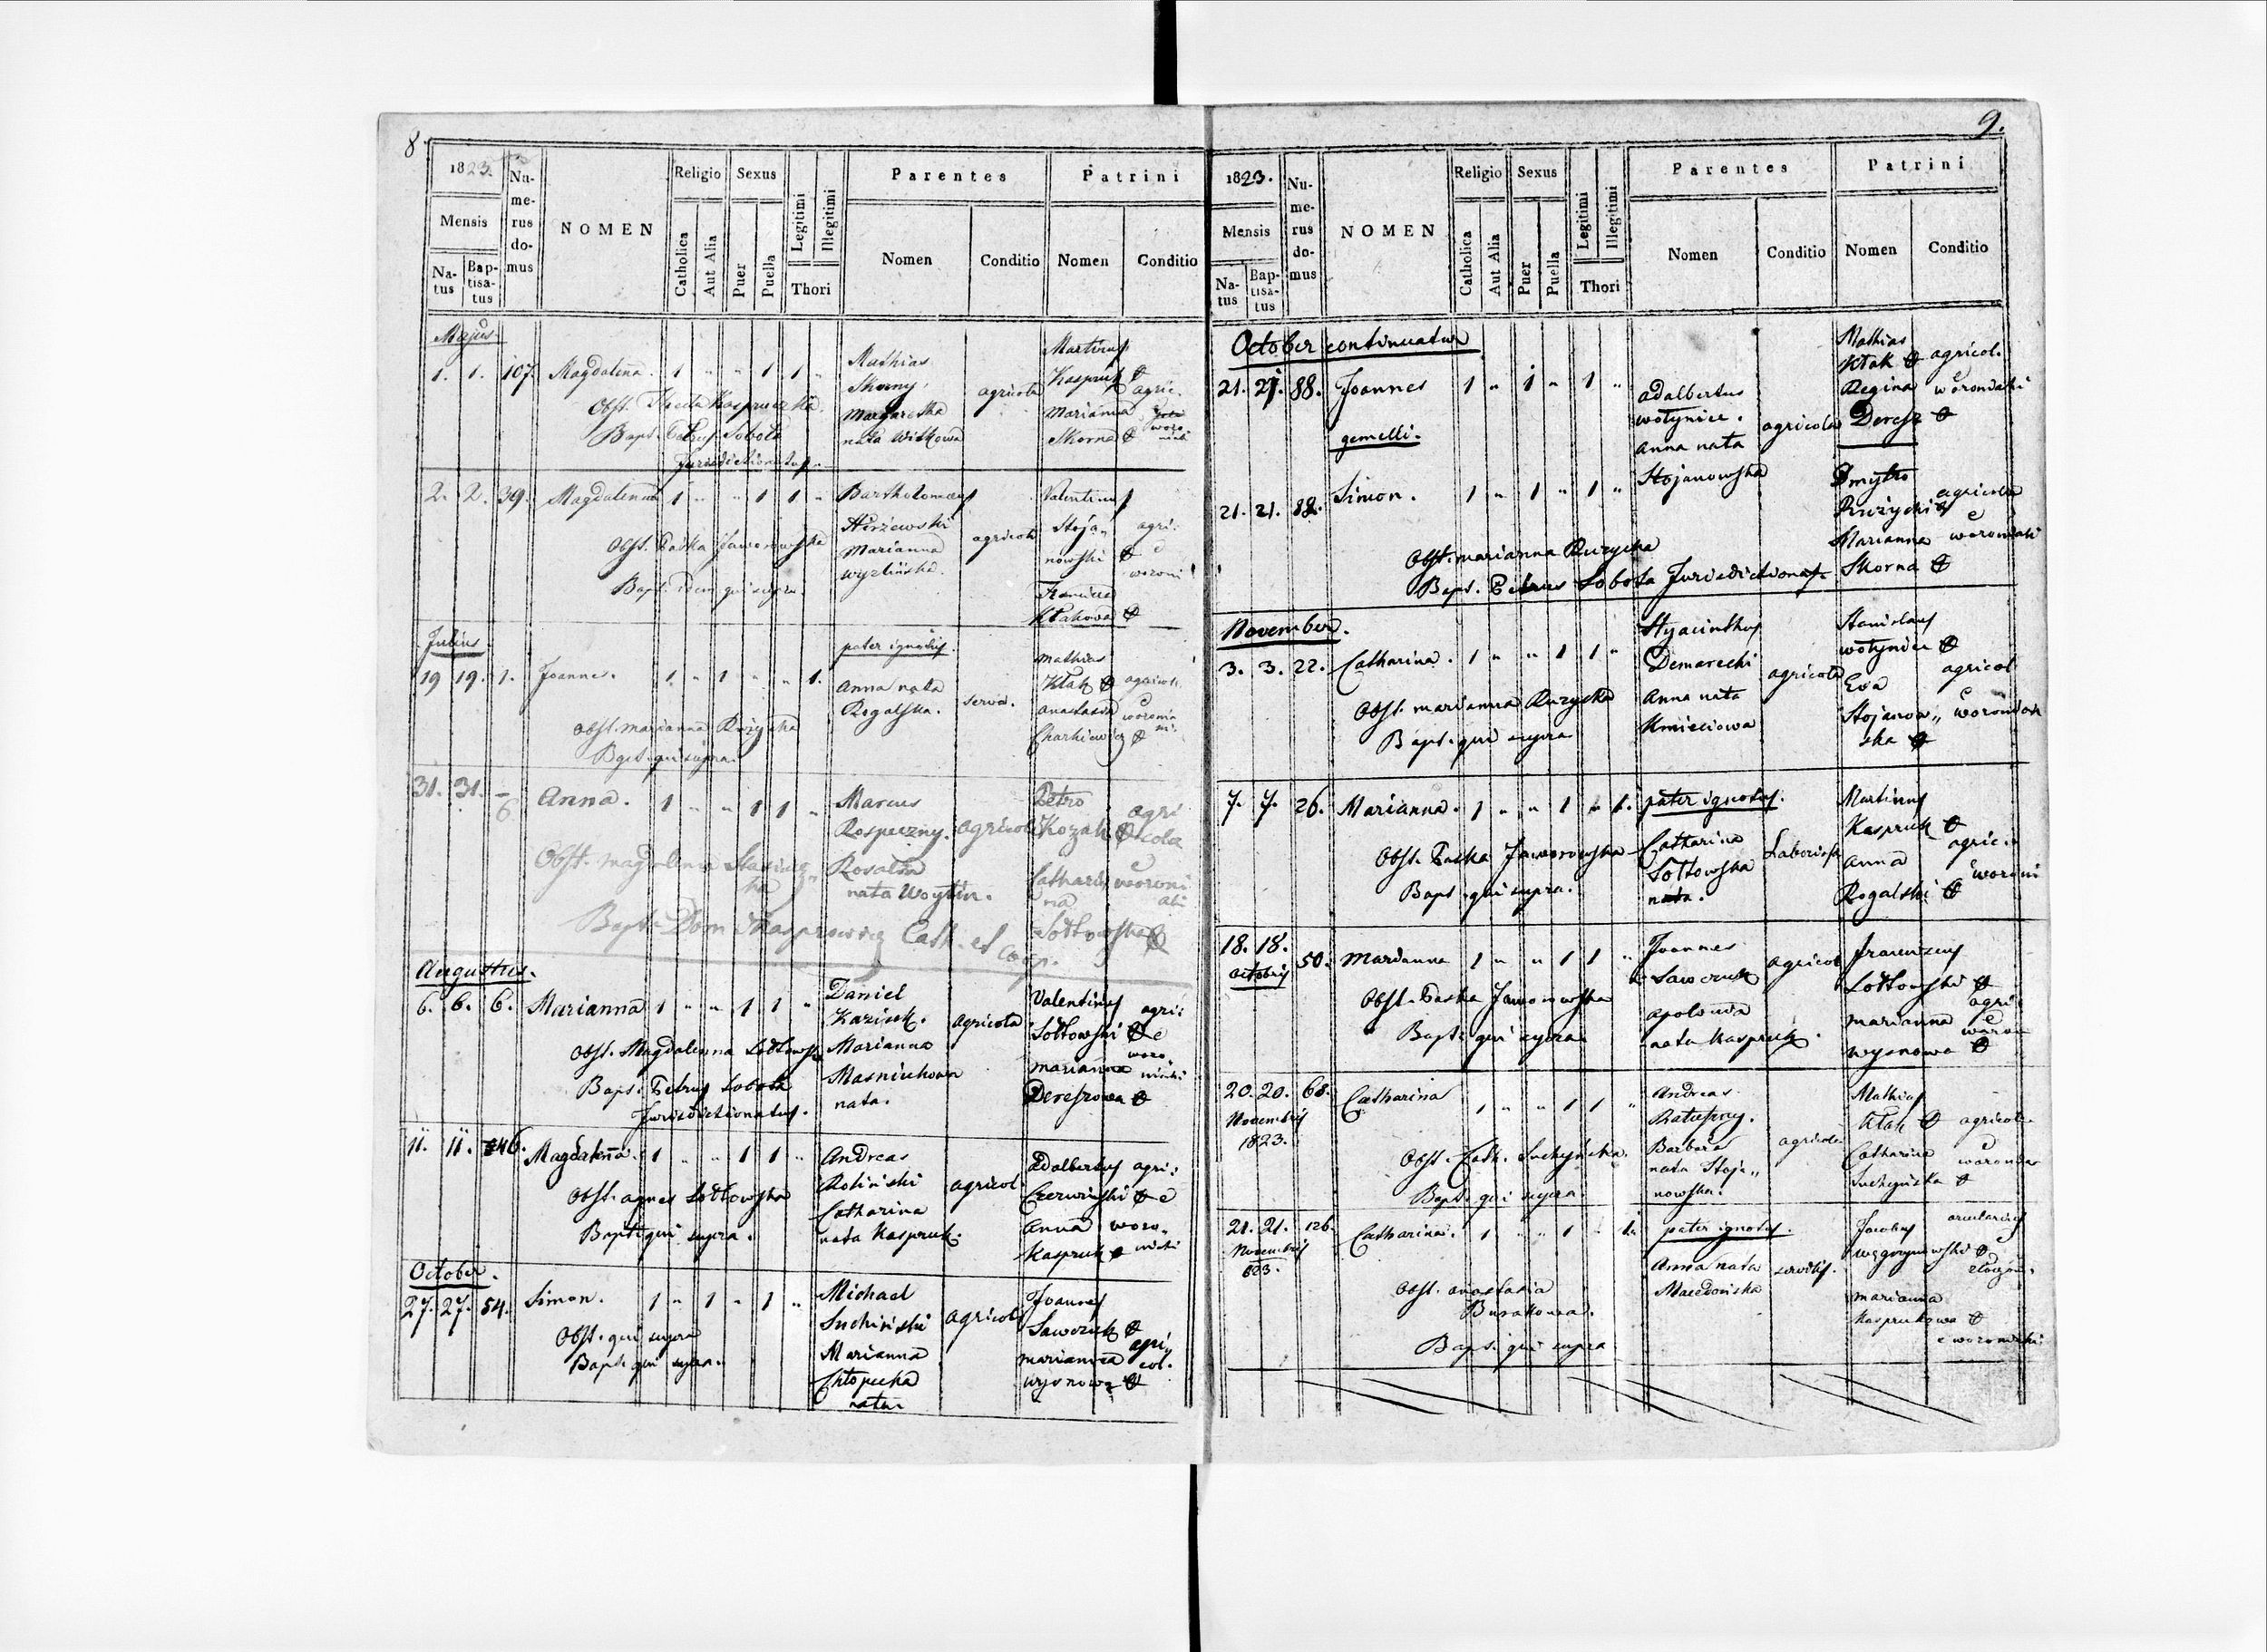 8
1823.
Nu-
me-
rus
do-
mus
NOMEN
Religio
Sexus
Legitimi
Illegitimi
Parentes
Patrini
Mensis
Na-
tus
Bap-
tisa-
tus
Catholica
Aut Alia
Puer
Puella
Thori
Nomen
Conditio
Nomen
Conditio
Majus
1. 1. 107. Magdalena. 1 " " 1 1 "
Mathias
Skorny.
Margaretha
nata Witkowa
agricola
Martinus
Kaspruk
Marianna
Skorna
agric.
Obst. Kasprucka.
Bapt. Petrus Sobota
Jurisdictionatus.
2. 2. 39. Magdalena 1 " " 1 1 "
Bartholomaeus
Marianna
agricola
Valentinus
Stoja"
nowski
Kłakowa
agri:
e
woroni
Obst. Paśka Jaworowska
Bapt. Idem qui supra.
Julius
19 19. 1. Joannes. 1. " 1 " " 1.
pater ignotus.
Anna nata
Rogalska.
serva.
Mathias
Kłak
Anastasia
agricol.
e
Obst. Marianna Ruzycka
Bapt. qui supra.
31. 31. 6 Anna. 1 " " 1 1 "
Marcus
Rospeczny.
Rosalia
nata Woytin.
agricola
Petro
Kozak
Cathari
na
Sołtowska
agri
cola
e
woroni
aki
Obst. Magdalena
Bapt. Dom Kasprowicz Cath. et Coop.
Augustus.
6. 6. 6. Marianna 1 " " 1 1 "
Daniel
Kaziuk.
Marianna
Masniukowa
nata.
agricola
Valentinus
Sołtowski
Marianna
Dereszowa
agri:
e
woro"
niaki
Obst. Magdalenna Sołtowska
Bapt. Petrus Sobota
Jurisdictionatus.
11. 11. 46. Magdalena. 1 " " 1 1 "
Andreas
Rolinski
Catharina
nata Kaspruk.
agricol.
Adalbertus
Czerwinski
Anna
Kaspruk
agri:
e
woro"
niaki
Obst. Agnes Sołtowska
Bapt. qui supra.
October.
27. 27. 54. Simon. 1 " 1 " 1 "
Michael
Suchinski
Marianna
Chłopecka
nata
agricola
Joannes
Sawczuk
Marianna
Wysnowa
agri"
col.
Obst. qui supra
Bapt. qui supra.
9.
1823.
Nu-
me-
rus
do-
mus
NOMEN
Religio
Sexus
Legitimi
Illegitimi
Parentes
Patrini
Mensis
Na-
tus
Bap-
tisa-
tus
Catholica
Aut Alia
Puer
Puella
Thori
Nomen
Conditio
Nomen
Conditio
October continuatur
21. 21. 88. Joannes 1 " 1 " 1 "
gemelli.
Adalbertus
Wołyniec.
Anna nata
Stojanowska
agricola
Mathias
Kłak
Regina
Deresz
agricol.
e
woroniaki
21. 21. 88. Simon. 1 " 1 " 1 "
Dmytro
Ruzycki
Marianna
Skorna
agricola
e
woroniaki
Obst. Marianna Ruzycka
Bapt. Petrus Sobota Jurisdictionat.
November.
3. 3. 22. Catharina. 1 " " 1 1 "
Hyacinthus
Demarecki
Anna nata
Kmieciowa
agricola
Stanislaus
Wołyniec
Eva
Stojanow"
ska
agricol
e
Obst. Marianna Ruzycka
Bapt. qui supra
7. 7. 26. Marianna. 1 " " 1 " 1.
pater ignotus.
Catharina
Sołtowska
nata.
Martinus
Kaspruk
Anna
Rogalski
agric.
e
Obst. Paska Jaworowska
Bapt. qui supra.
18. 18. 50. Marianna 1 " " 1 1 "
octobris
Joannes
Sawczuk
Apolonia
nata Kaspruk.
agricol
Sołtowski
Marianna
Wysnowa
agri
e
Obst. Paska Jaworowska
Bapt. qui supra
20. 20. 68. Catharina 1 " " 1 1 "
Novembris
1823.
Andreas
Barbara
nata Stoja"
nowska.
agricola
Mathias
Kłak
Catharina
Suchynska
agricol.
e
Obst. Cath. Suchyńska.
Bapt. qui supra.
21. 21. 126. Catharina. 1 " " 1 " 1.
Novembris
823.
pater ignotus.
Anna nata
Macedońska
Jacobus
Marianna
Kasprukowa
e woroniaki.
Obst. Anastasia
Burakowa.
Bapt. qui supra